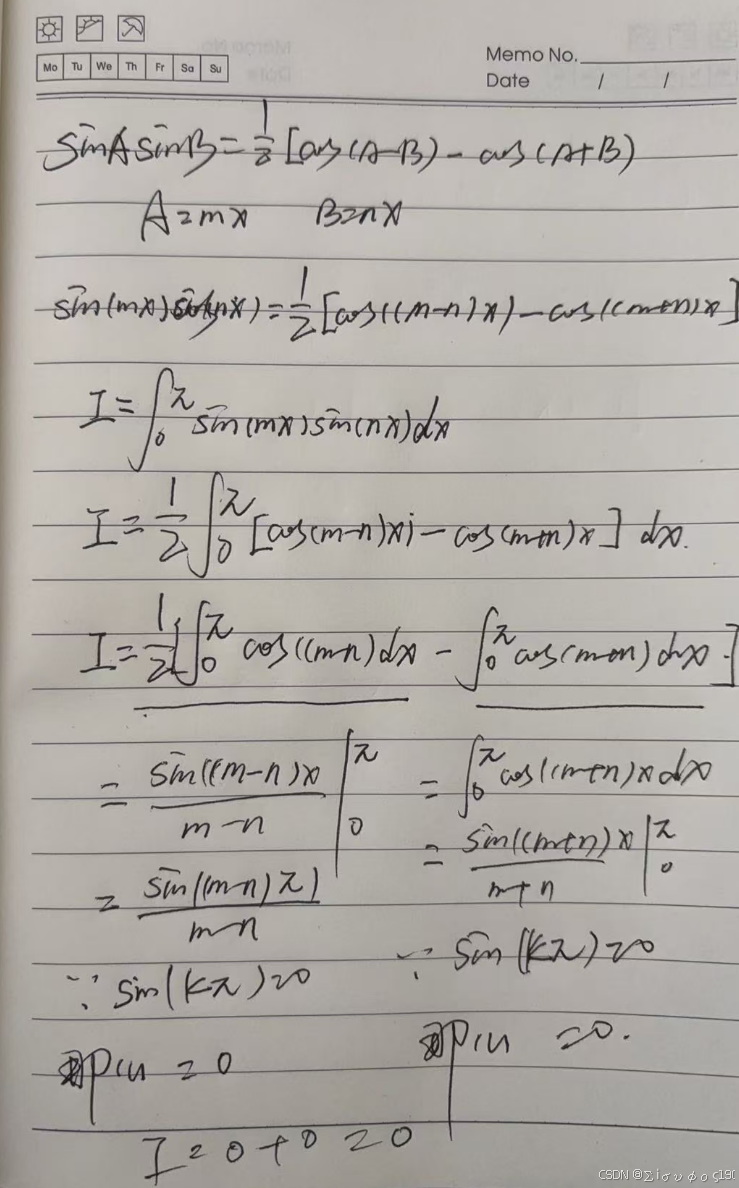 Mo Tu We Th Fr Sa Su
Memo No.
Date / /
sinAsinB=1/2[cos(A-B)-cos(A+B)
A=mx B=nx
sin(mx)sin(nx)=1/2[cos((m-n)x)-cos((m+n)x]
I=∫₀^π sin(mx)sin(nx)dx
I=1/2∫₀^π[cos(m-n)x)-cos(m+n)x]dx.
I=1/2[∫₀^π cos((m-n)dx-∫₀^π cos(m+n)dx.]
=sin((m-n)x/m-n|₀^π =∫₀^π cos((m+n)xdx
=sin((m-n)π)/m-n =sin((m+n)x/m+n|₀^π
∵sin(kπ)=0 ∵sin(kπ)=0
=0 =0.
I=0+0=0
CSDN @Σίσυφος190